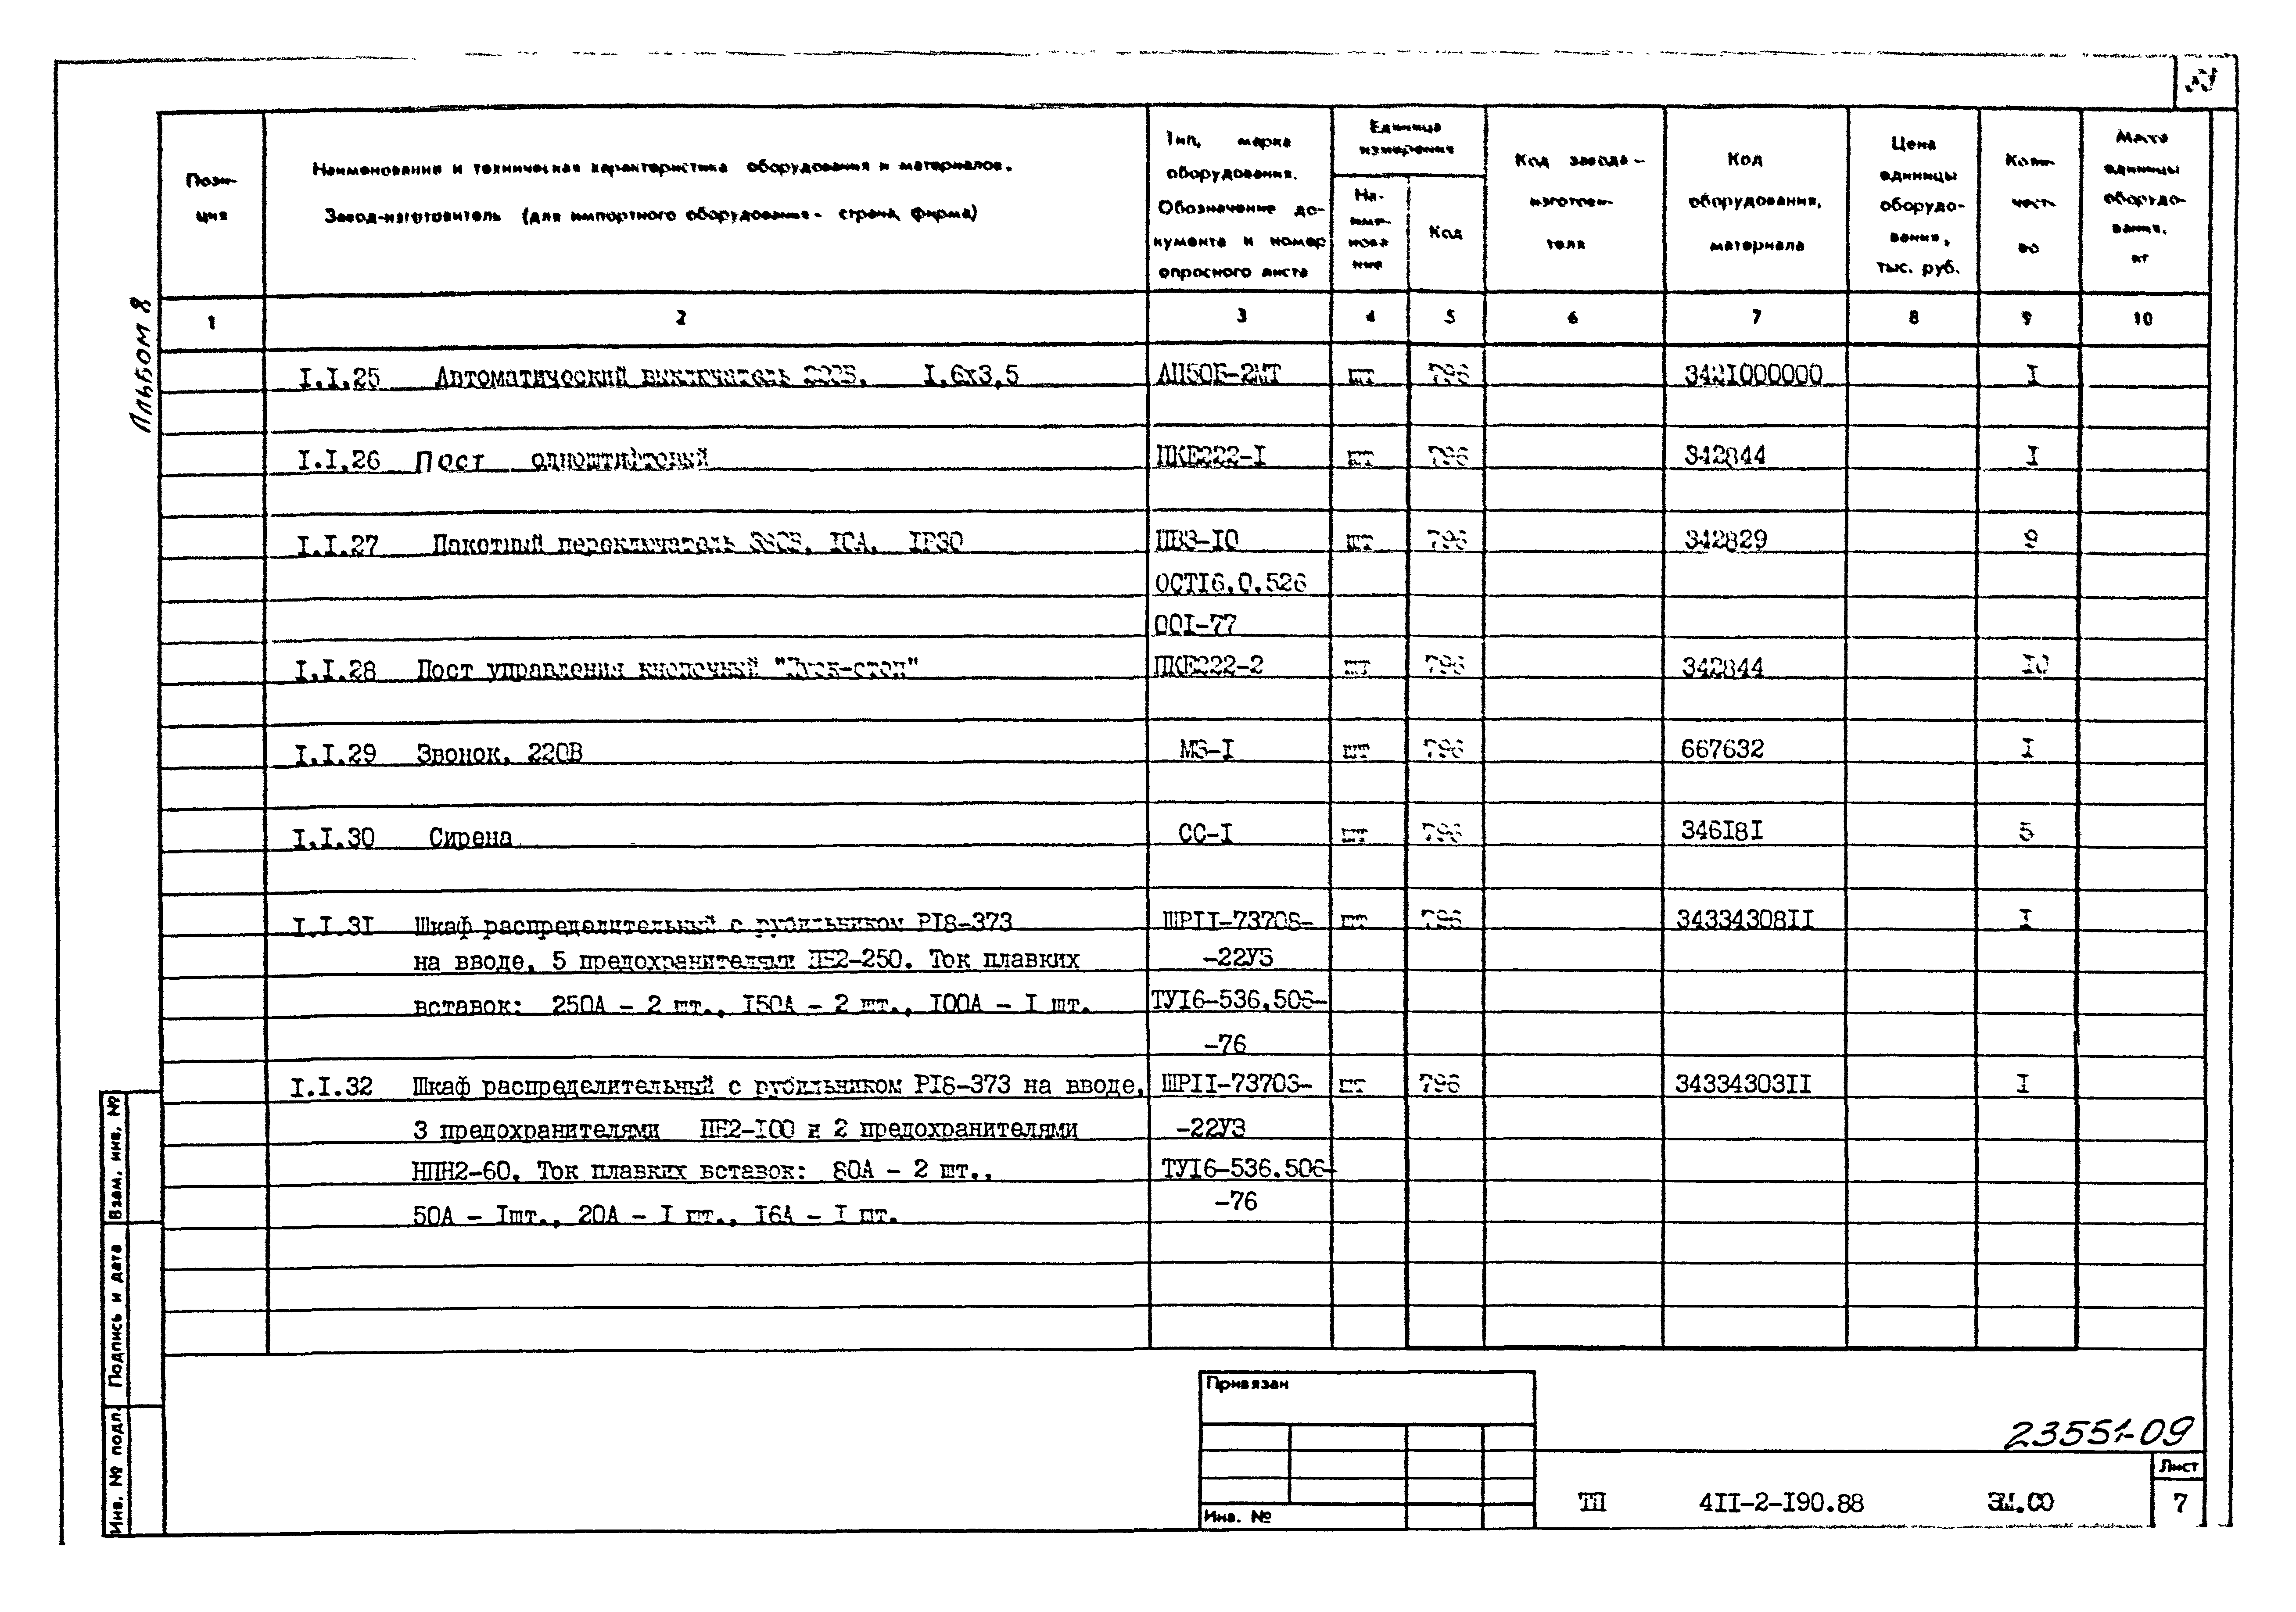 Альбом 8
Пози-
ция
Наименование и техническая характеристика оборудования и материалов.
Завод-изготовитель (для импортного оборудования - страна, фирма)
Тип, марка
оборудования.
Обозначение до-
кумента и номер
опросного листа
Единица
измерения
На-
име-
нова
ние
Код
Код завода-
изготови-
теля
Код
оборудования,
материала
Цена
единицы
оборудо-
вания,
тыс. руб.
Коли-
чест-
во
Масса
единицы
оборудо-
вания,
кг
1 2 3 4 5 6 7 8 9 10
I.I.25 Автоматический выключатель 220В, I,6х3,5 АП50Б-2МТ шт 796 342I000000 I
I.I.26 Пост одноштифтовый ПКЕ222-I шт 796 342844 I
I.I.27 Пакетный переключатель 380В, I0А, IP30 ПВ3-I0 шт 796 342829 9
ОСТI6.0.526
00I-77
I.I.28 Пост управления кнопочный "Пуск-стоп" ПКЕ222-2 шт 796 342844 I0
I.I.29 Звонок, 220В МЗ-I шт 796 667632 I
I.I.30 Сирена СС-I шт 796 346I8I 5
I.I.3I Шкаф распределительный с рубильником РI8-373 ШРII-73708- шт 796 34334308II I
на вводе, 5 предохранителями ПН2-250. Ток плавких -22У3
вставок: 250А - 2 шт., I50А - 2 шт., I00А - I шт. ТУI6-536.506-
-76
I.I.32 Шкаф распределительный с рубильником РI8-373 на вводе, ШРII-73703- шт 796 34334303II I
3 предохранителями ПН2-I00 и 2 предохранителями -22У3
НПН2-60. Ток плавких вставок: 80А - 2 шт., ТУI6-536.506-
-76
50А - Iшт., 20А - I шт., I6А - I шт.
Взам. инв. №
Подпись и дата
Инв. № подл.
Привязан
Инв. №
23551-09
ТП 4II-2-I90.88 ЭМ.СО
Лист
7